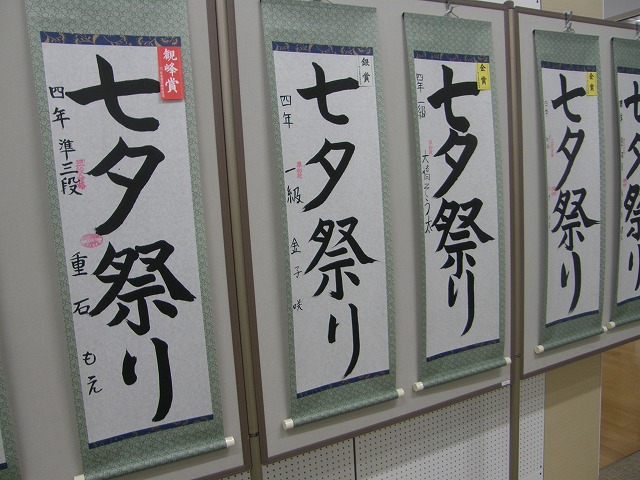 観峰賞
七夕祭り
四年 準三段 重石 もえ
銀賞
七夕祭り
四年 一級 金子 咲
金賞
七夕祭り
四年 一級
金賞
七夕祭り